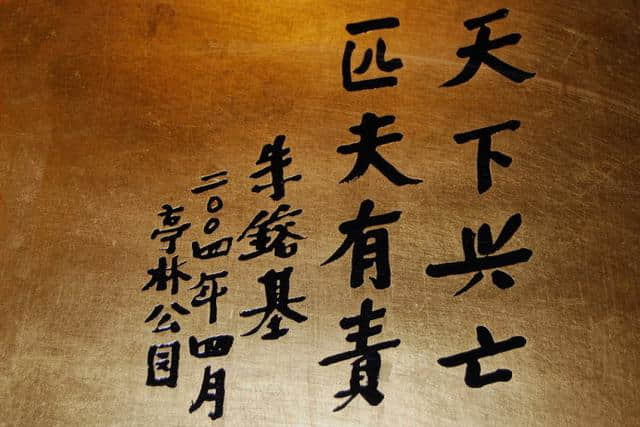 天下兴亡
匹夫有責
朱鎔基
二〇〇四年四月
亭林公园